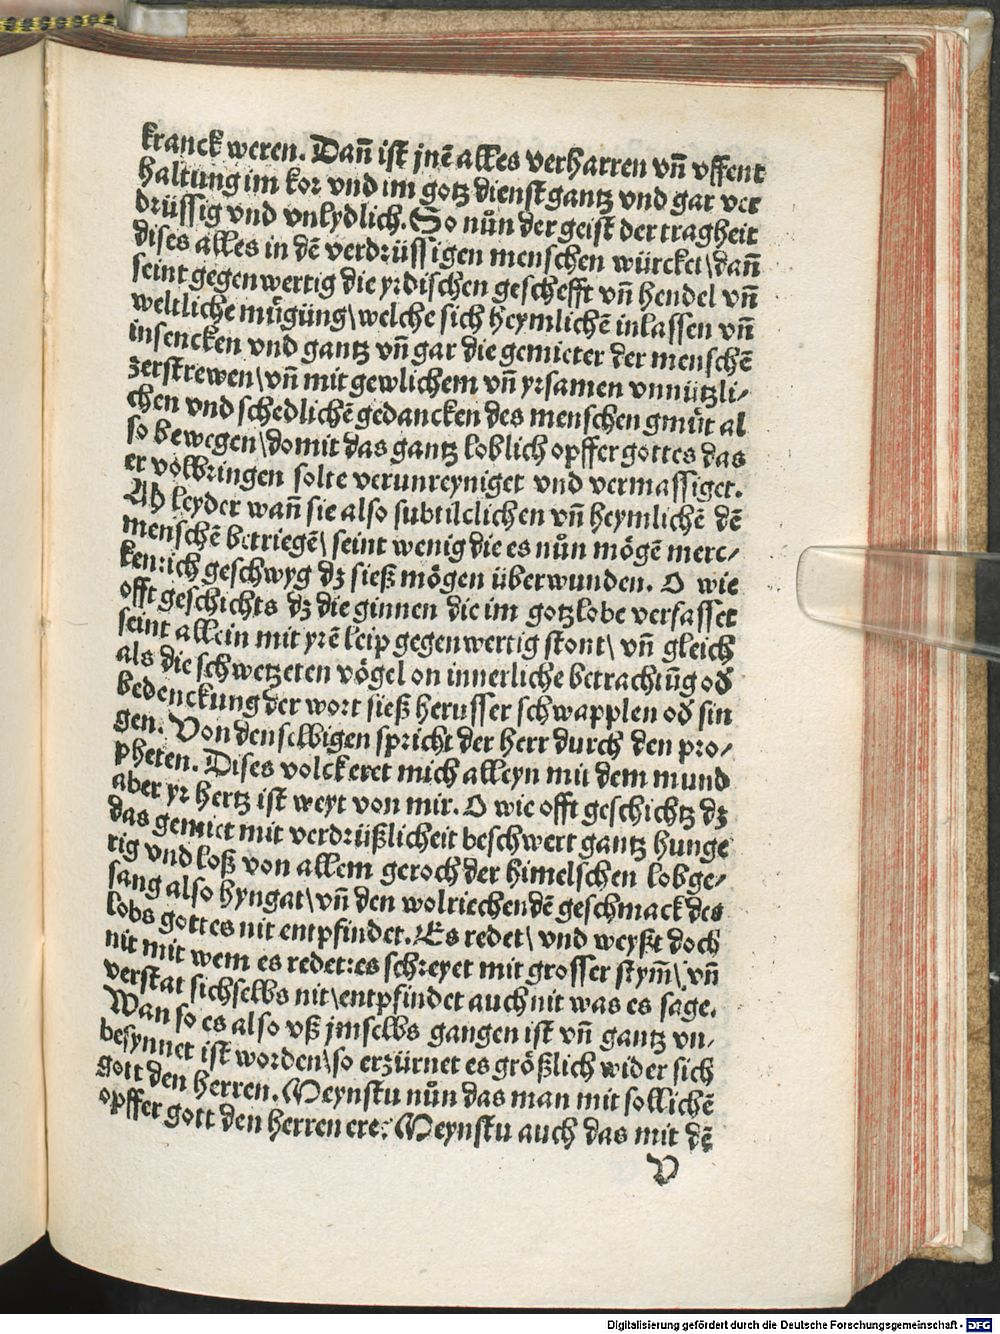 kranck weren. Dañ ist jnē alles verharren vñ vffent
haltung im kor vnd im gotz dienst gantz vnd gar ver
drüssig vnd vnlydlich. So nůn der geist der tragheit
dises alles in dē verdrüssigen menschen würcket\dañ
seint gegenwertig die yrdischen geschefft vñ hendel vñ
weltliche mügüng\welche sich heymlichē inlassen vñ
insencken vnd gantz vñ gar die gemieter der menschē
zerstrewen\vñ mit gewlichem vñ yrsamen vnnützli/
chen vnd schedlichē gedancken des menschen gmüt al
so bewegen\domit das gantz loblich opffer gottes das
er volbringen solte verunreyniget vnd vermassiget.
Ah leyder wañ sie also subtilclichen vñ heymlichē dē
menschē betriegē\ seint wenig die es nůn mögē merc/
ken:ich geschwyg dz sieß mögen überwunden. O wie
offt geschichts dz die ginnen die im gotzlobe verfasset
seint allein mit yrē leip gegenwertig stont\ vñ gleich
als die schwetzeten vögel on innerliche betrachtūg od
bedenckung der wort sieß herusser schwapplen od sin
gen. Von denselbigen spricht der herr durch den pro/
pheten. Dises volck eret mich alleyn mit dem mund
aber yr hertz ist weyt von mir. O wie offt geschichtz dz
das gemiet mit verdrüßlicheit beschwert gantz hunge
rig vnd loß von allem geroch der himelschen lobge/
sang also hyngat\vñ den wolriechendē geschmack des
lobs gottes nit entpfindet. Es redet\ vnd weyßt doch
nit mit wem es redet:es schreyet mit grosser stym̄\ vñ
verstat sichselbs nit\entpfindet auch nit was es sage.
Wan so es also vß jmselbs gangen ist vñ gantz vn/
besynnet ist worden\so erzürnet es größlich wider sich
gott den herren. Meynstu nůn das man mit sollichē
opffer gott den herren ere: Meynstu auch das mit dē
V
Digitalisierung gefördert durch die Deutsche Forschungsgemeinschaft - DFG